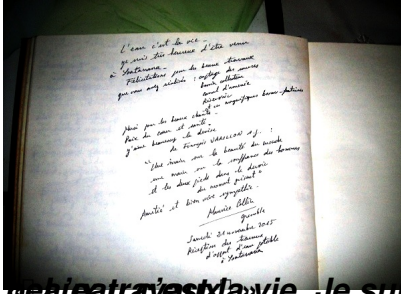 L'eau c'est la vie -
je suis très heureux d'être venu
à Soatanana -
Félicitations pour les beaux travaux
que vous avez réalisés : captage des sources
bassin collecteur
canal d'amenée
Réservoir
et ces magnifiques bornes-fontaines
Merci pour les beaux chants -
Paix du cœur et santé -
J'aime beaucoup la devise
de François VARILLON s.j. :
"Une main sur la beauté du monde
une main sur la souffrance des hommes
et les deux pieds dans le devoir
du moment présent"
Amitié et bien vive sympathie.
Maurice
Grenoble
Samedi 21 novembre 2015
Réception des travaux
d'apport d'eau potable
à Soatanana
la vie le su